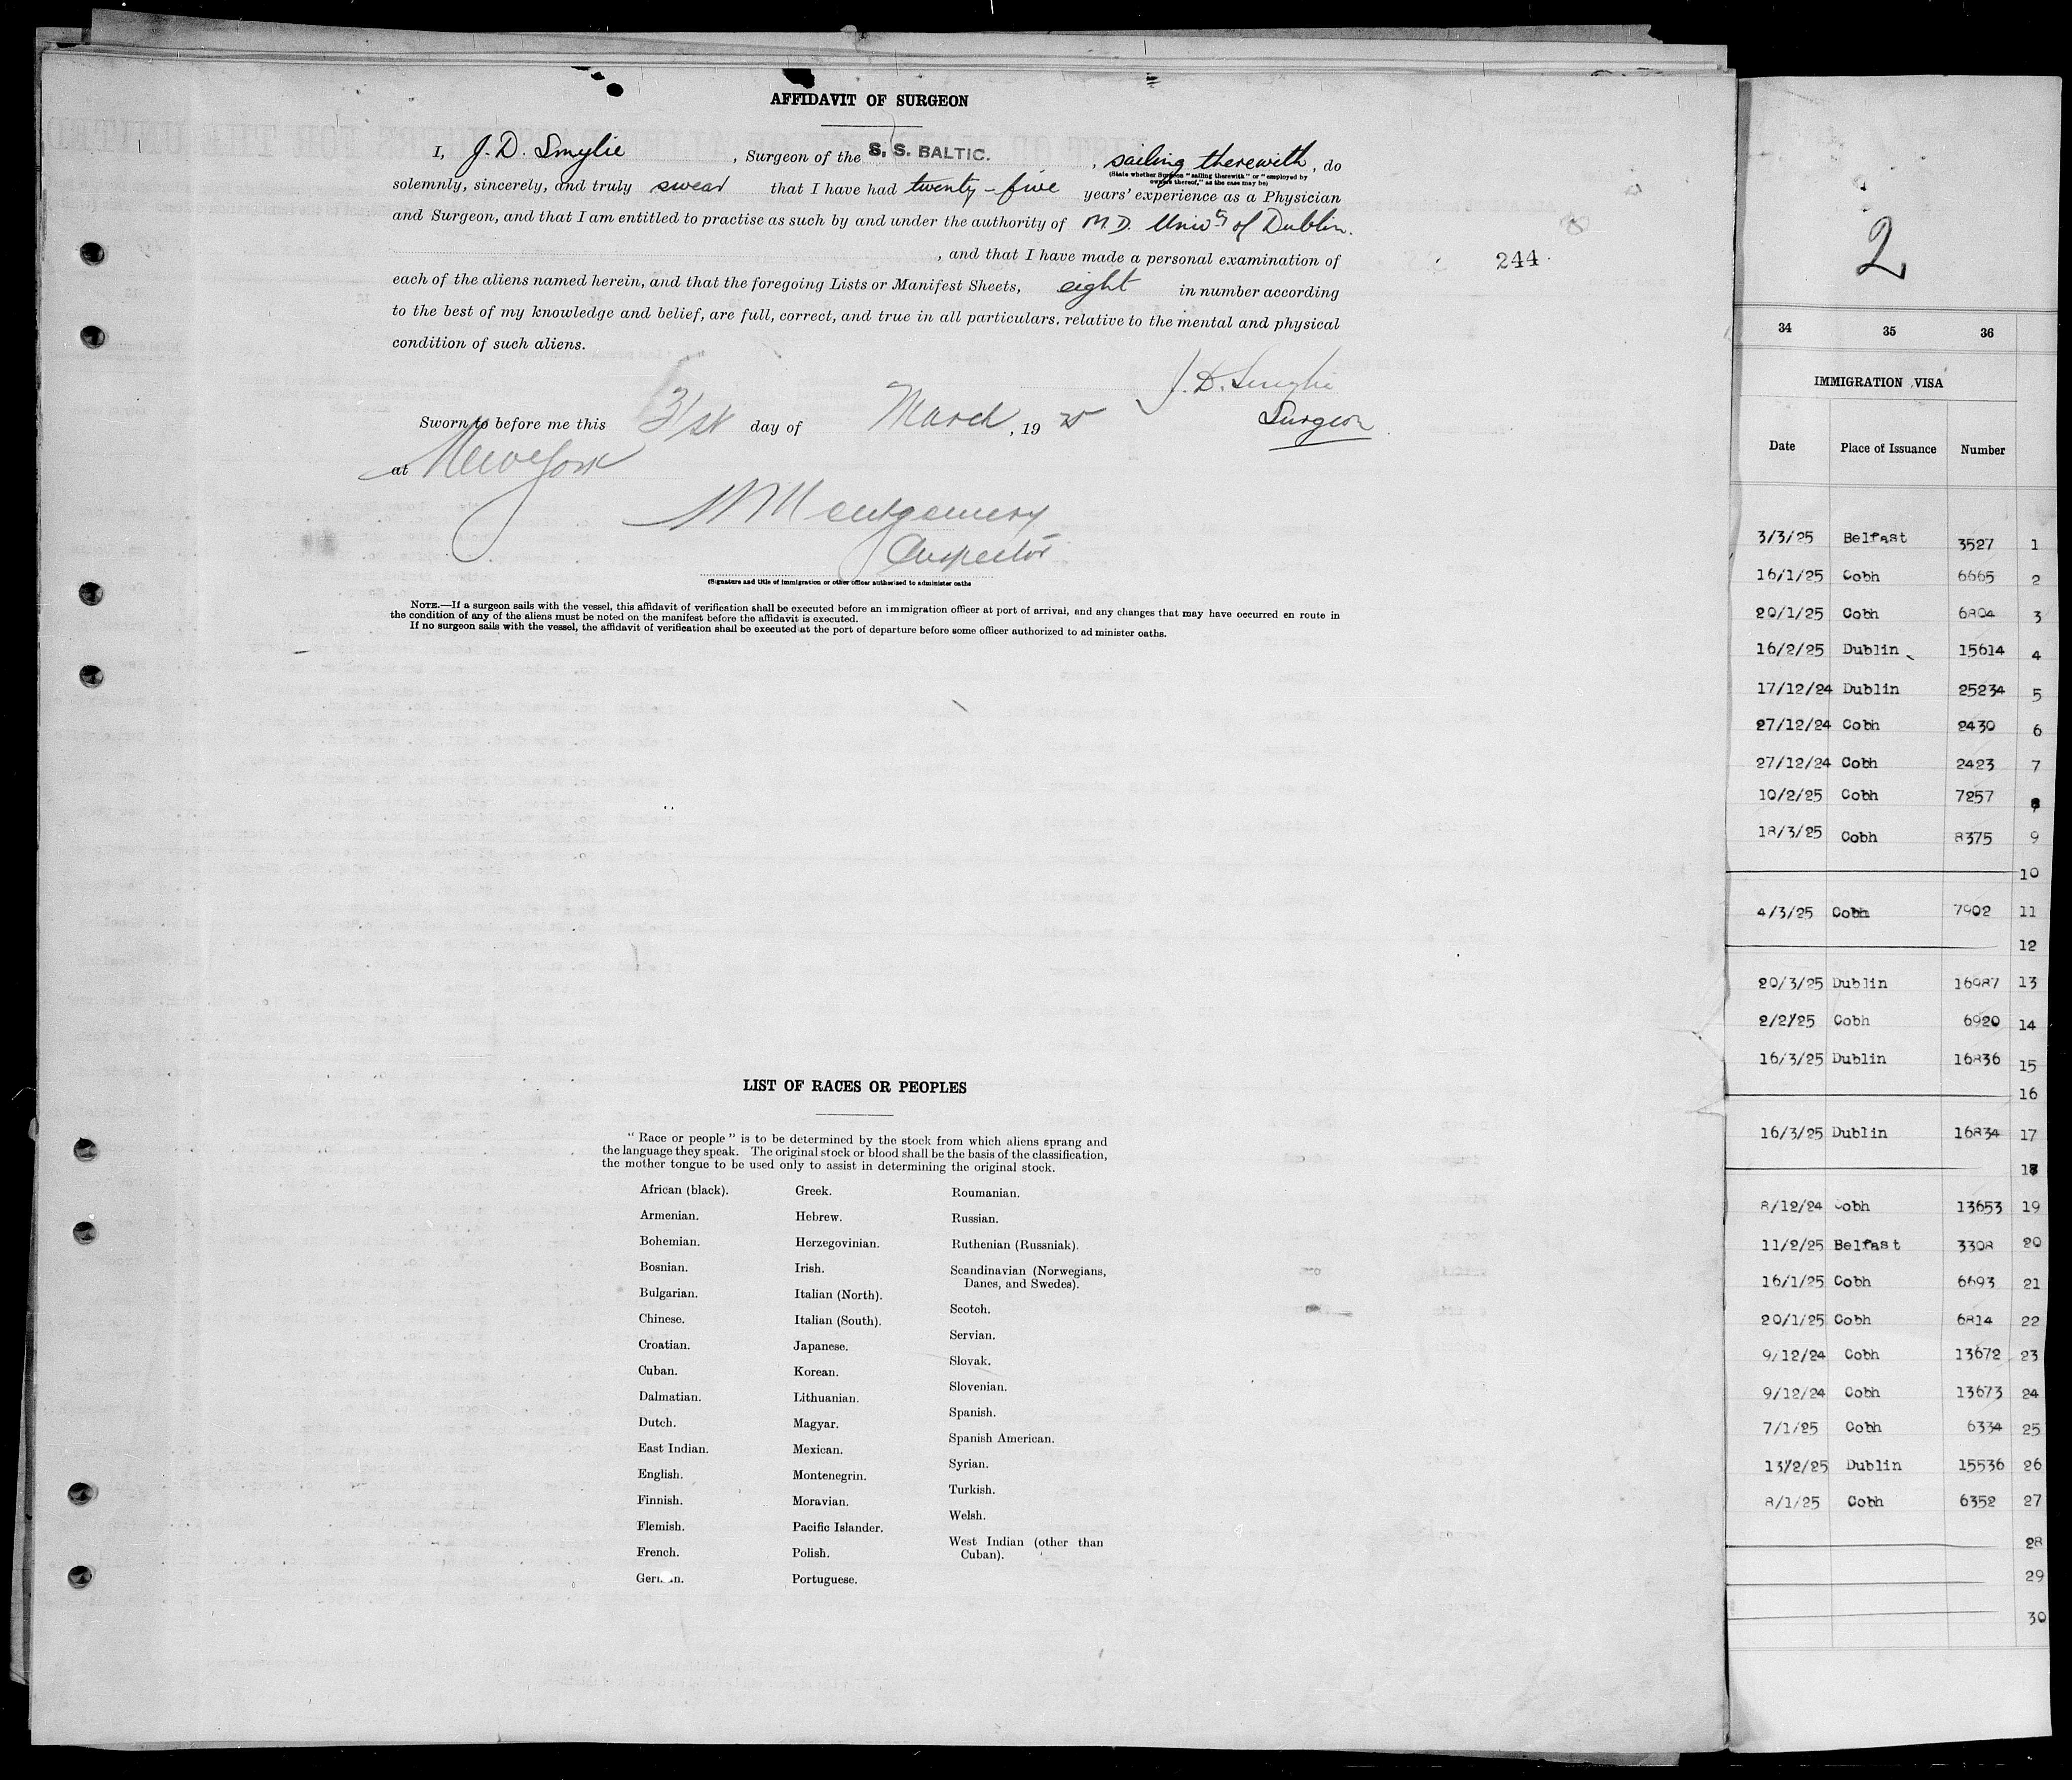 AFFIDAVIT OF SURGEON
I, J. D. Smylie, Surgeon of the S. S. BALTIC. , sailing therewith, do
(State whether Surgeon "sailing therewith" or "employed by
owners thereof," as the case may be)
solemnly, sincerely, and truly swear that I have had twenty-five years' experience as a Physician
and Surgeon, and that I am entitled to practise as such by and under the authority of M.D. Univty of Dublin.
, and that I have made a personal examination of
each of the aliens named herein, and that the foregoing Lists or Manifest Sheets, eight in number according
to the best of my knowledge and belief, are full, correct, and true in all particulars, relative to the mental and physical
condition of such aliens.
244
J. D. Smylie
Surgeon
Sworn to before me this 31st day of March, 1925
at New York
Montgomery
Inspector
(Signature and title of immigration or other officer authorized to administer oaths
NOTE.—If a surgeon sails with the vessel, this affidavit of verification shall be executed before an immigration officer at port of arrival, and any changes that may have occurred en route in
the condition of any of the aliens must be noted on the manifest before the affidavit is executed.
If no surgeon sails with the vessel, the affidavit of verification shall be executed at the port of departure before some officer authorized to administer oaths.
LIST OF RACES OR PEOPLES
"Race or people" is to be determined by the stock from which aliens sprang and
the language they speak. The original stock or blood shall be the basis of the classification,
the mother tongue to be used only to assist in determining the original stock.
African (black).
Armenian.
Bohemian.
Bosnian.
Bulgarian.
Chinese.
Croatian.
Cuban.
Dalmatian.
Dutch.
East Indian.
English.
Finnish.
Flemish.
French.
German.
Greek.
Hebrew.
Herzegovinian.
Irish.
Italian (North).
Italian (South).
Japanese.
Korean.
Lithuanian.
Magyar.
Mexican.
Montenegrin.
Moravian.
Pacific Islander.
Polish.
Portuguese.
Roumanian.
Russian.
Ruthenian (Russniak).
Scandinavian (Norwegians,
Danes, and Swedes).
Scotch.
Servian.
Slovak.
Slovenian.
Spanish.
Spanish American.
Syrian.
Turkish.
Welsh.
West Indian (other than
Cuban).
2
34 35 36
IMMIGRATION VISA
Date Place of Issuance Number
3/3/25 Belfast 3527 1
16/1/25 Cobh 6665 2
20/1/25 Cobh 6804 3
16/2/25 Dublin 15614 4
17/12/24 Dublin 25234 5
27/12/24 Cobh 2430 6
27/12/24 Cobh 2423 7
10/2/25 Cobh 7257 8
18/3/25 Cobh 8375 9
10
4/3/25 Cobh 7902 11
12
20/3/25 Dublin 16987 13
2/2/25 Cobh 6920 14
16/3/25 Dublin 16836 15
16
16/3/25 Dublin 16834 17
18
8/12/24 Cobh 13653 19
11/2/25 Belfast 3308 20
16/1/25 Cobh 6693 21
20/1/25 Cobh 6814 22
9/12/24 Cobh 13672 23
9/12/24 Cobh 13673 24
7/1/25 Cobh 6334 25
13/2/25 Dublin 15536 26
8/1/25 Cobh 6352 27
28
29
30